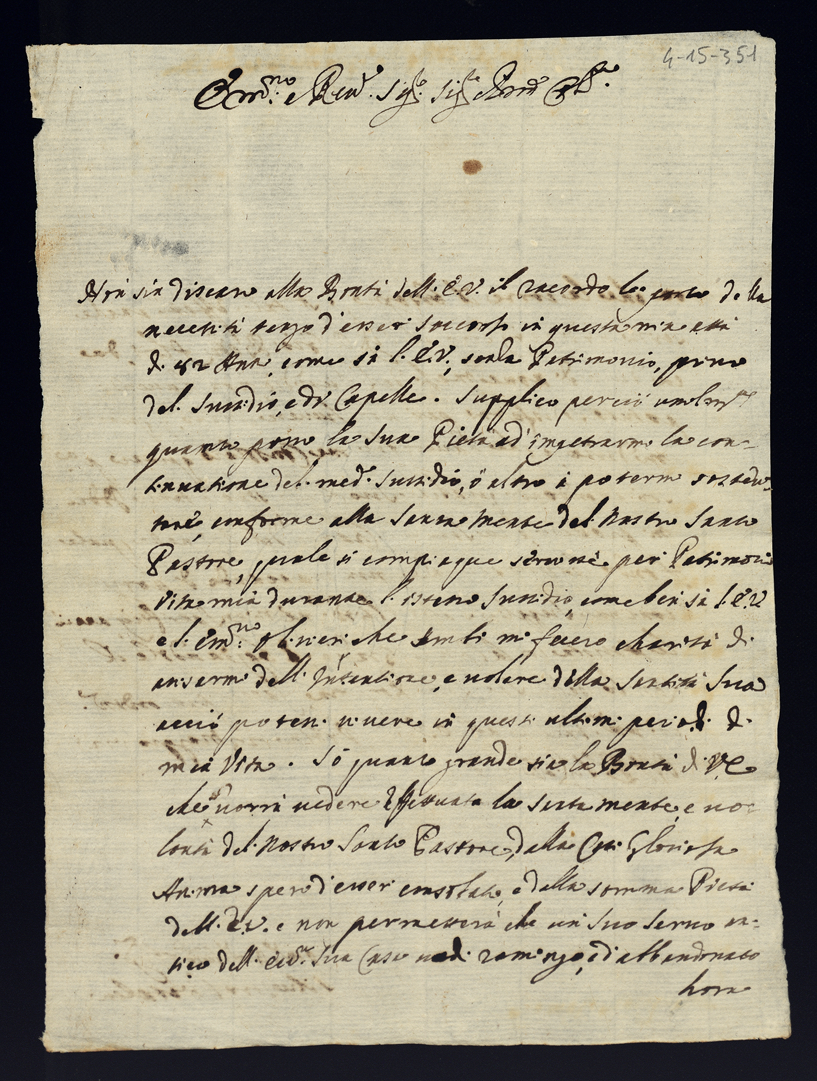 4-15-351
Em.mo e Rev.mo Sig.re Sig.re e P.ron
Non sia discaro alla Bontà dell'E.V. il racordo le porto della
necessità tengo d'esser soccorso in questa mia età
di 82 Anni, come sà l'E.V., senza Patrimonio, privo
del Sussidio, e di Capelle. Supplico perciò
quanto posso la Sua Pietà ad impetrarmi la con-
tinuatione del med.o Sussidio, ò altro à potermi
conforme alla Santa Mente del Nostro Santo
Pastore, quale si compiaque per Patrimonio
Vita mia durante l'istesso Sussidio, come ben sà l'E.V.
e l'Em.mo che ambi mi fecero charità di
dell'Intentione, e volere della Santità Sua
acciò poter vivere in questi ultimi periodi di
mia Vita. Sò quanto grande sia la Bontà di V.E.
che vorrà vedere Effettuata la Santa mente, e vo-
lontà del Nostro Santo Pastore, dalla Cui Gloriosa
Anima spero d'esser consolato, e dalla somma Pietà
dell'E.V. e non permetterà che un Suo Servo an-
tico dell' Sua Casa vadi ramingo, ed abbandonato
hora